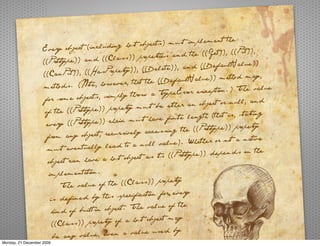 Every object (including host objects) must implement the
[[Prototype]] and [[Class]] properties and the [[Get]], [[Put]],
[[CanPut]], [[HasProperty]], [[Delete]], and [[DefaultValue]]
methods. (Note, however, that the [[DefaultValue]] method may,
for some objects, simply throw a TypeError exception.) The value
of the [[Prototype]] property must be either an object or null, and
every [[Prototype]] chain must have finite length (that is, starting
from any object, recursively accessing the [[Prototype]] property
must eventually lead to a null value). Whether or not a native
object can have a host object as its [[Prototype]] depends on the
implementation.
The value of the [[Class]] property
is defined by this specification for every
kind of built-in object. The value of the
[[Class]] property of a host object may
be any value, even a value used by
Monday, 21 December 2009